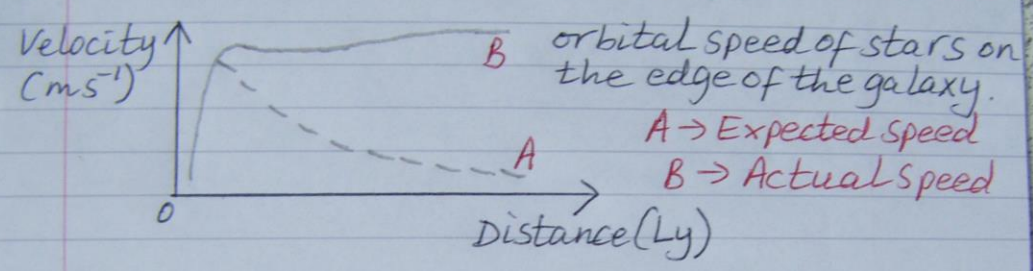 Velocity
(ms⁻¹)
B
A
0
Distance(Ly)
orbital speed of stars on
the edge of the galaxy.
A → Expected speed
B → Actual speed